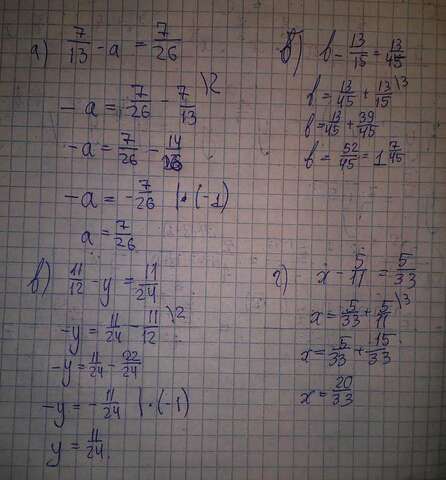 а) 7/13 - a = 7/26
-a = 7/26 - 7/13 \2
-a = 7/26 - 14/26
-a = -7/26 | • (-1)
a = 7/26
б) b - 13/15 = 13/45
b = 13/45 + 13/15 \3
b = 13/45 + 39/45
b = 52/45 = 1 7/45
в) 11/12 - y = 11/24
-y = 11/24 - 11/12 \2
-y = 11/24 - 22/24
-y = -11/24 | • (-1)
y = 11/24.
г) x - 5/11 = 5/33
x = 5/33 + 5/11 \3
x = 5/33 + 15/33
x = 20/33